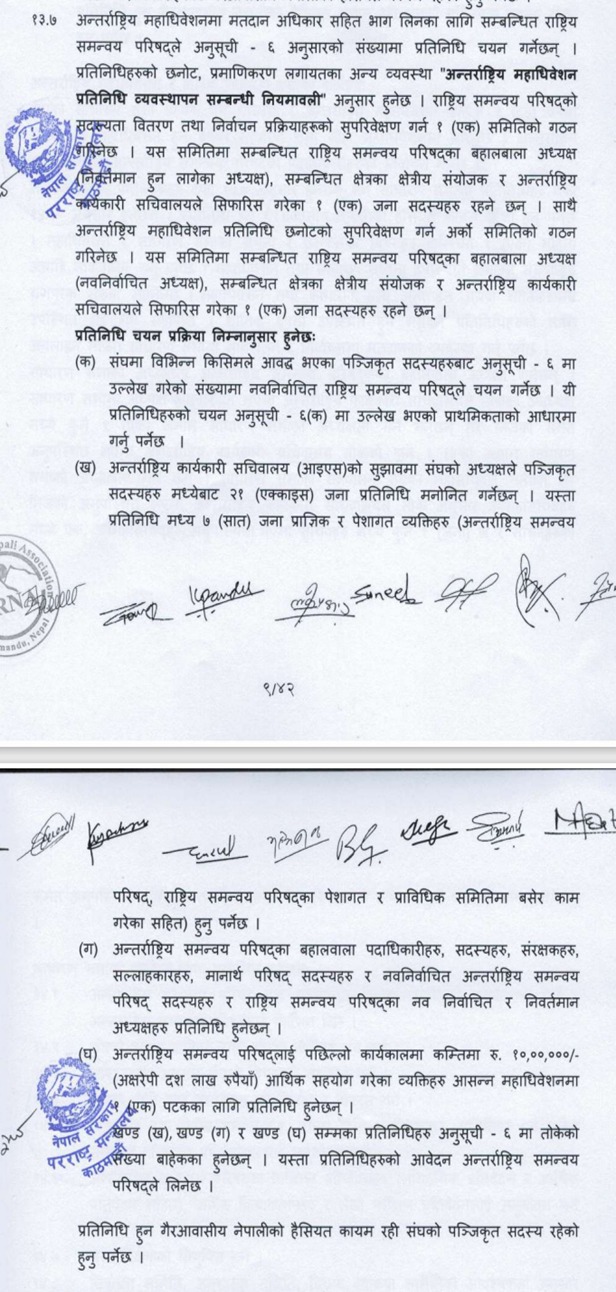 १३.७ अन्तर्राष्ट्रिय महाधिवेशनमा मतदान अधिकार सहित भाग लिनका लागि सम्बन्धित राष्ट्रिय
समन्वय परिषद्ले अनुसूची - ६ अनुसारको संख्यामा प्रतिनिधि चयन गर्नेछन् ।
प्रतिनिधिहरुको छनोट, प्रमाणिकरण लगायतका अन्य व्यवस्था "अन्तर्राष्ट्रिय महाधिवेशन
प्रतिनिधि व्यवस्थापन सम्बन्धी नियमावली" अनुसार हुनेछ । राष्ट्रिय समन्वय परिषद्को
सदस्यता वितरण तथा निर्वाचन प्रक्रियाहरूको सुपरिवेक्षण गर्न १ (एक) समितिको गठन
गरिनेछ । यस समितिमा सम्बन्धित राष्ट्रिय समन्वय परिषद्का बहालबाला अध्यक्ष
(निवर्तमान हुन लागेका अध्यक्ष), सम्बन्धित क्षेत्रका क्षेत्रीय संयोजक र अन्तर्राष्ट्रिय
कार्यकारी सचिवालयले सिफारिस गरेका १ (एक) जना सदस्यहरु रहने छन् । साथै
अन्तर्राष्ट्रिय महाधिवेशन प्रतिनिधि छनोटको सुपरिवेक्षण गर्न अर्को समितिको गठन
गरिनेछ । यस समितिमा सम्बन्धित राष्ट्रिय समन्वय परिषद्का बहालबाला अध्यक्ष
(नवनिर्वाचित अध्यक्ष), सम्बन्धित क्षेत्रका क्षेत्रीय संयोजक र अन्तर्राष्ट्रिय कार्यकारी
सचिवालयले सिफारिस गरेका १ (एक) जना सदस्यहरु रहने छन् ।
प्रतिनिधि चयन प्रक्रिया निम्नानुसार हुनेछः
(क) संघमा विभिन्न किसिमले आवद्ध भएका पञ्जिकृत सदस्यहरुबाट अनुसूची - ६ मा
उल्लेख गरेको संख्यामा नवनिर्वाचित राष्ट्रिय समन्वय परिषद्ले चयन गर्नेछ । यी
प्रतिनिधिहरुको चयन अनुसूची - ६(क) मा उल्लेख भएको प्राथमिकताको आधारमा
गर्नु पर्नेछ ।
(ख) अन्तर्राष्ट्रिय कार्यकारी सचिवालय (आइएस)को सुझावमा संघको अध्यक्षले पञ्जिकृत
सदस्यहरु मध्येबाट २१ (एक्काइस) जना प्रतिनिधि मनोनित गर्नेछन् । यस्ता
प्रतिनिधि मध्य ७ (सात) जना प्राज्ञिक र पेशागत व्यक्तिहरु (अन्तर्राष्ट्रिय समन्वय
नेपाल सरकार
परराष्ट्र
Suneel
९/४२
परिषद्, राष्ट्रिय समन्वय परिषद्का पेशागत र प्राविधिक समितिमा बसेर काम
गरेका सहित) हुनु पर्नेछ ।
(ग) अन्तर्राष्ट्रिय समन्वय परिषद्का बहालवाला पदाधिकारीहरु, सदस्यहरु, संरक्षकहरु,
सल्लाहकारहरु, मानार्थ परिषद् सदस्यहरु र नवनिर्वाचित अन्तर्राष्ट्रिय समन्वय
परिषद् सदस्यहरु र राष्ट्रिय समन्वय परिषद्का नव निर्वाचित र निवर्तमान
अध्यक्षहरु प्रतिनिधि हुनेछन् ।
(घ) अन्तर्राष्ट्रिय समन्वय परिषद्लाई पछिल्लो कार्यकालमा कम्तिमा रु. १०,००,०००/-
(अक्षरेपी दश लाख रुपैयाँ) आर्थिक सहयोग गरेका व्यक्तिहरु आसन्न महाधिवेशनमा
१ (एक) पटकका लागि प्रतिनिधि हुनेछन् ।
खण्ड (ख), खण्ड (ग) र खण्ड (घ) सम्मका प्रतिनिधिहरु अनुसूची - ६ मा तोकेको
संख्या बाहेकका हुनेछन् । यस्ता प्रतिनिधिहरुको आवेदन अन्तर्राष्ट्रिय समन्वय
परिषद्ले लिनेछ ।
नेपाल सरकार
परराष्ट्र मन्त्रालय
काठमाडौं
प्रतिनिधि हुन गैरआवासीय नेपालीको हैसियत कायम रही संघको पञ्जिकृत सदस्य रहेको
हुनु पर्नेछ ।